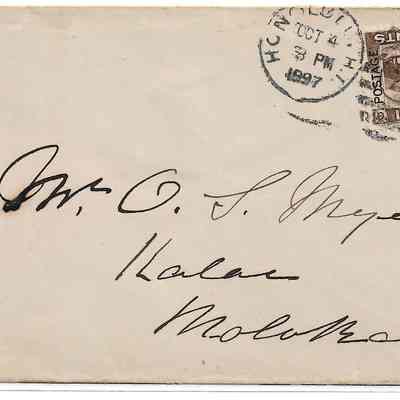 HONOLULU H.I.
OCT 4
3 PM
1897
POSTAGE
Mr. O. S. Meye
Kalae
Moloka